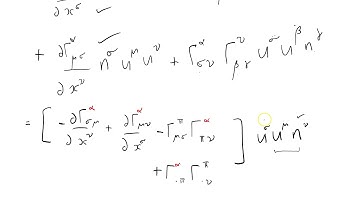 ∂x^σ ✓
+ ∂Γ^α_{μσ}/∂x^ν n^σ u^μ u^ν + Γ^α_{σν} Γ^ν_{βγ} u^σ u^β n^γ
= [ -∂Γ^α_{σμ}/∂x^ν + ∂Γ^α_{μν}/∂x^σ - Γ^π_{μσ} Γ^α_{πν}
+ Γ^α_{·π} Γ^π_{·ν} ] u^σ u^μ n^ν